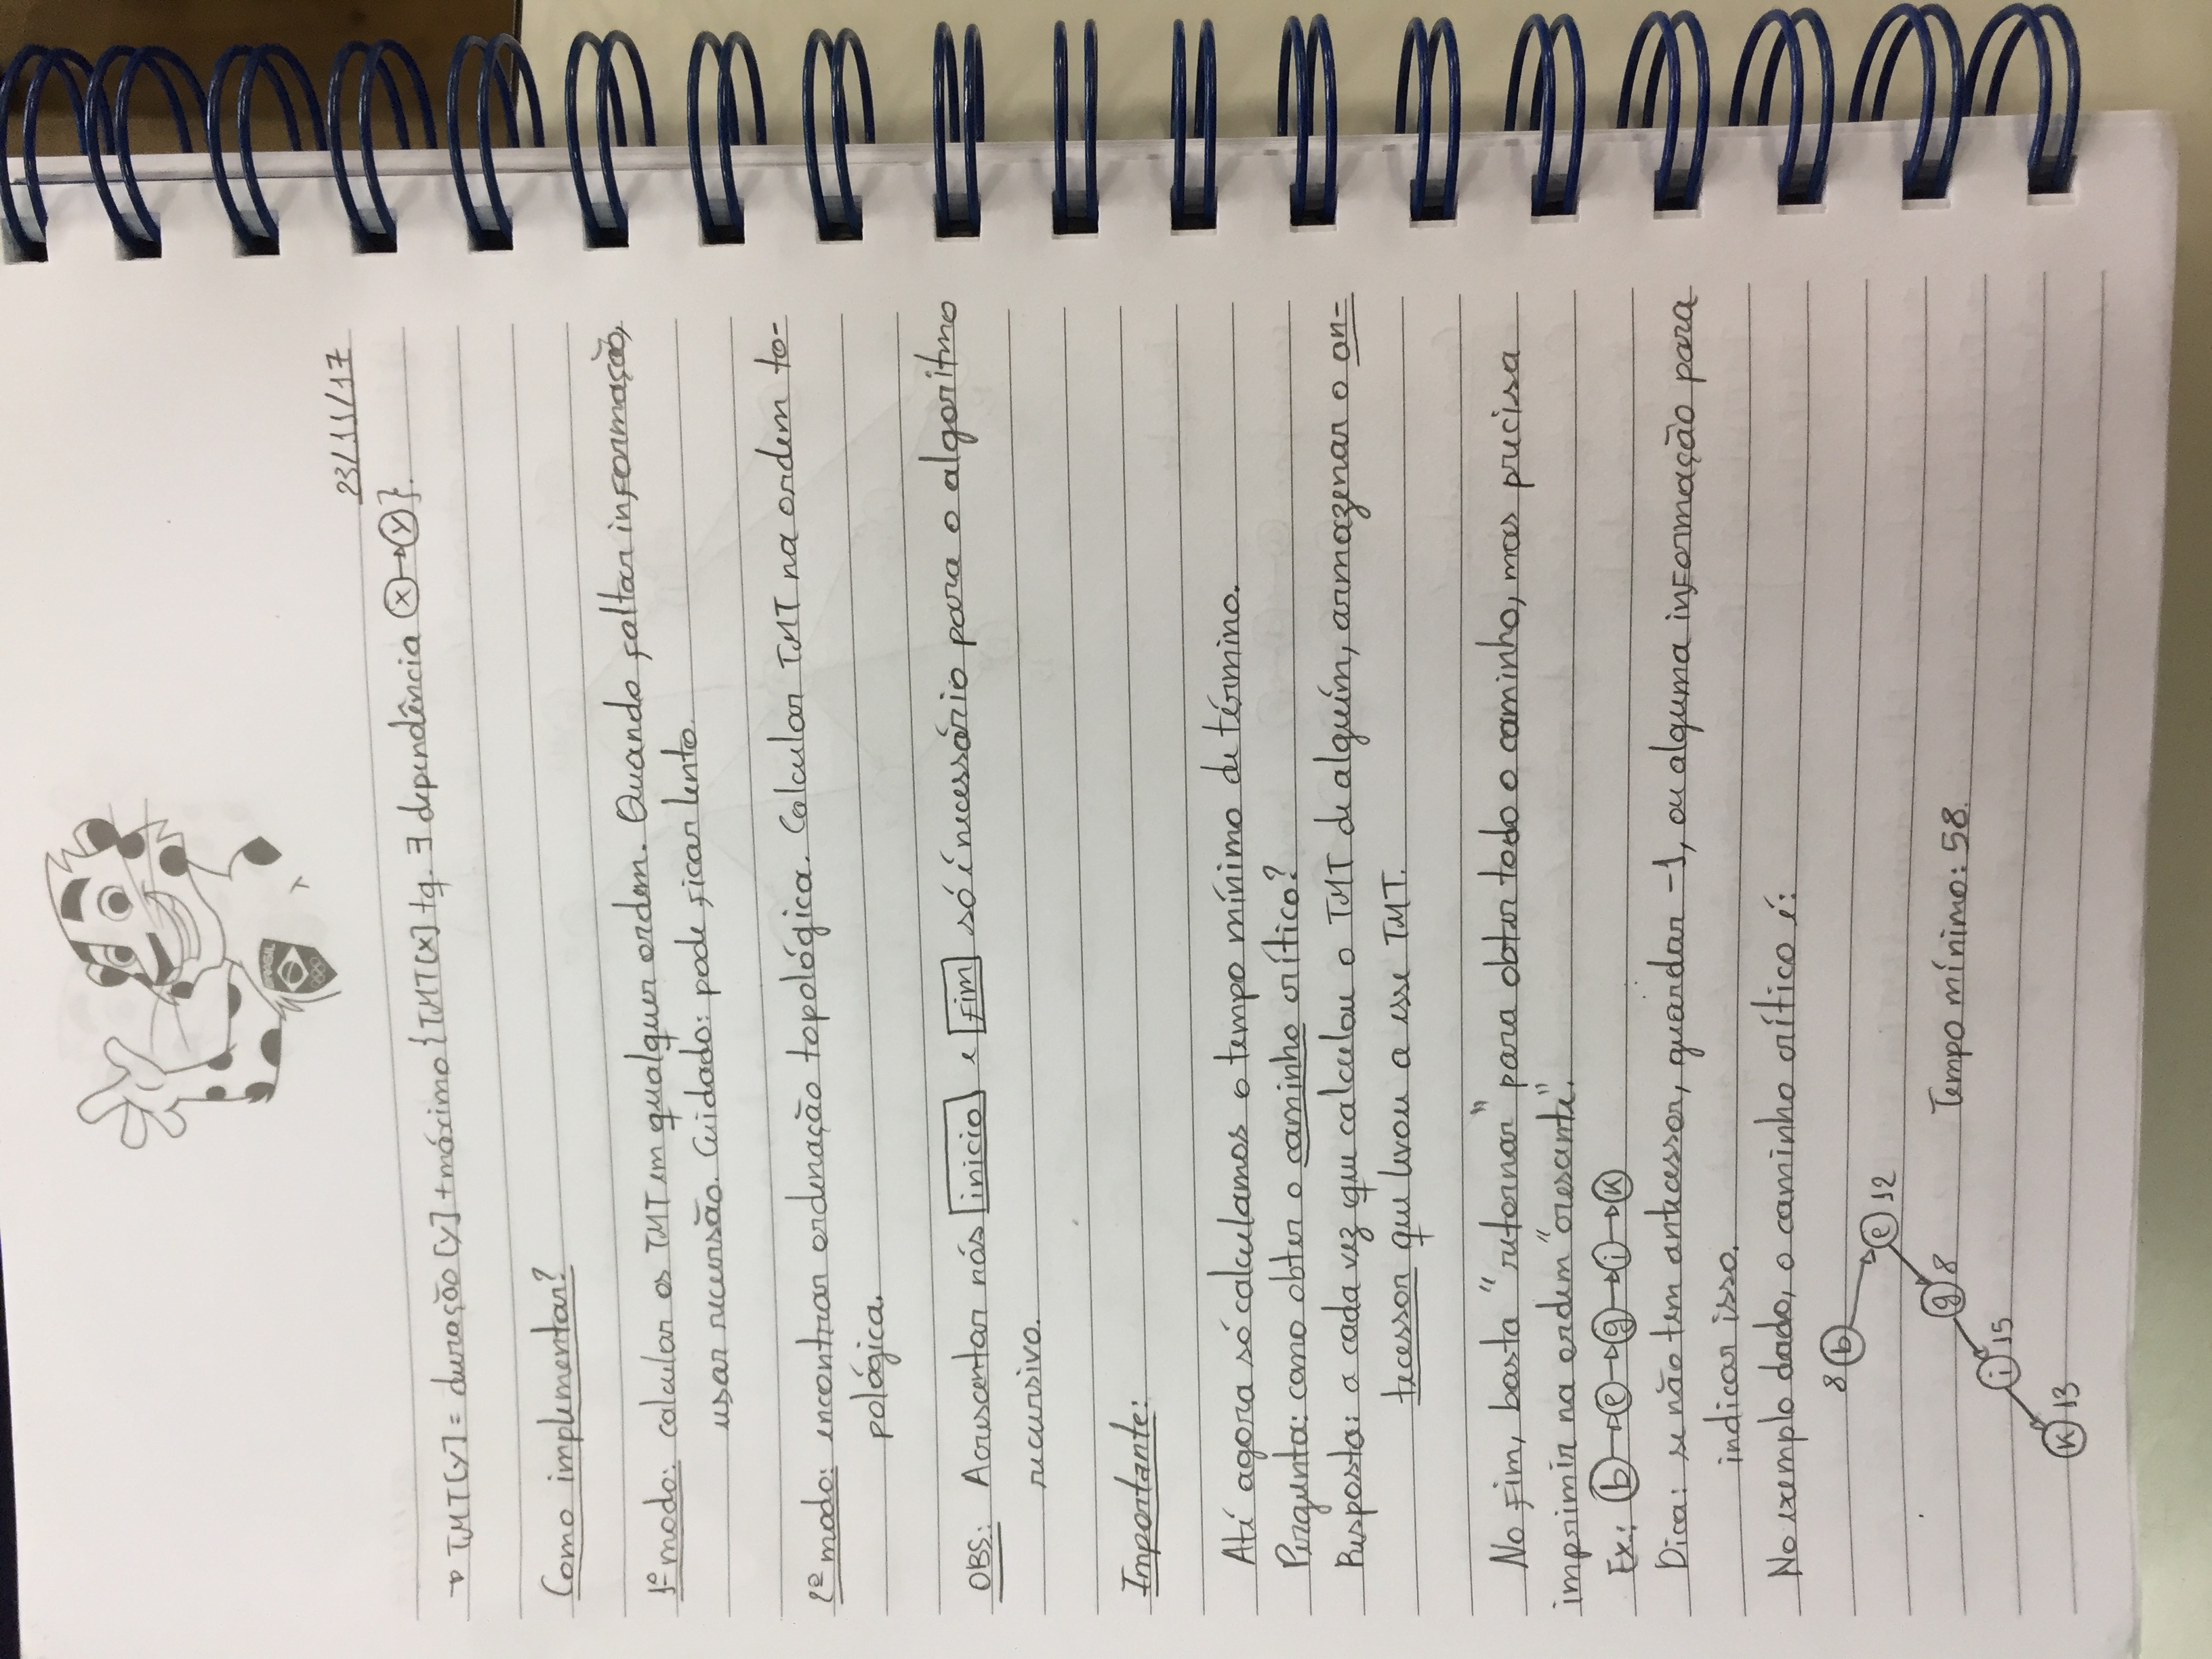 BRASIL
23/11/17
→ TMT[y] = duração [y] + máximo {TMT[x] tq. ∃ dependência x→y}.
Como implementar?
1º modo: calcular os TMT em qualquer ordem. Quando faltar informação,
usar recursão. Cuidado: pode ficar lento.
2º modo: encontrar ordenação topológica. Calcular TMT na ordem to-
pológica.
OBS: Acrescentar nós inicio e fim só é necessário para o algoritmo
recursivo.
Importante:
Até agora só calculamos o tempo mínimo de término.
Pergunta: como obter o caminho crítico?
Resposta: a cada vez que calculou o TMT de alguém, armazenar o an-
tecessor que levou a esse TMT.
No fim, basta "retornar" para obter todo o caminho, mas precisa
imprimir na ordem "cresante".
Ex.: b→e→g→i→k
Dica: se não tem antecessor, guardar -1, ou alguma informação para
indicar isso.
No exemplo dado, o caminho crítico é:
8 b
e 12
g 8 Tempo mínimo: 58.
i 15
k 13